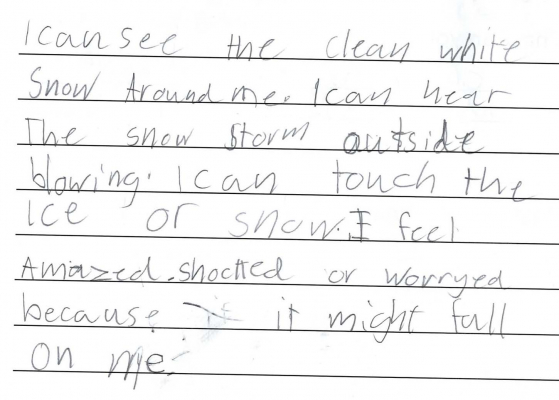 I can see the clean white
Snow Around me. I can hear
The snow storm outside
blowing. I can touch the
ice or snow. I feel
Amazed. shocked or worryed
because it might fall
on me.